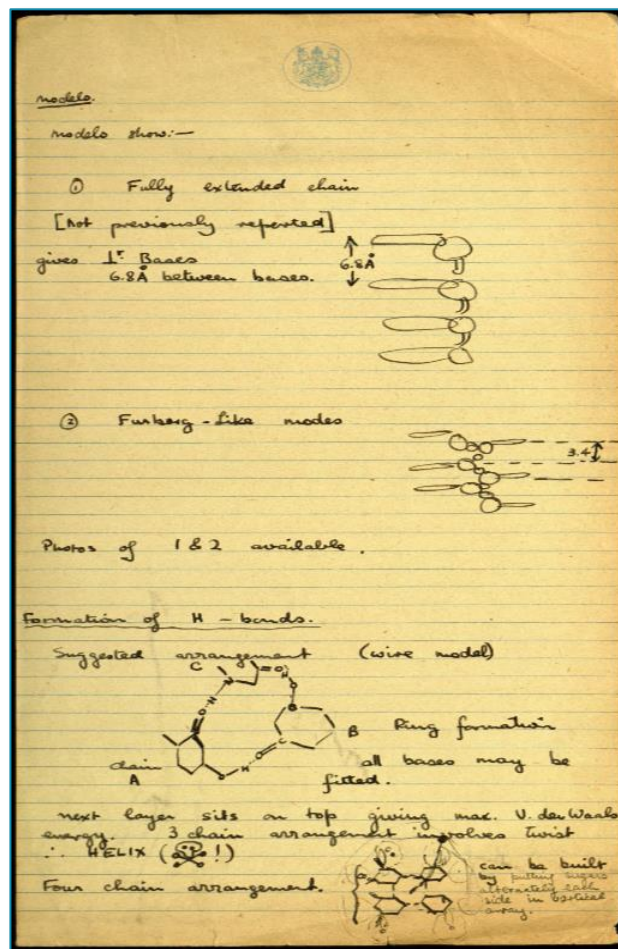 Models.
Models show:—
① Fully extended chain
[Not previously reported]
gives ⊥r Bases
6.8Å between bases.
6.8Å
② Furberg-like modes
3.4
Photos of 1 & 2 available.
Formation of H-bonds.
Suggested arrangement (wire model)
C
B Ring formation
chain
A
all bases may be
fitted.
next layer sits on top giving max. V. der Waals
energy. 3 chain arrangement involves twist
∴ HELIX (☠!)
Four chain arrangement.
can be built
by putting sugars
alternately each
side in vertical
array.